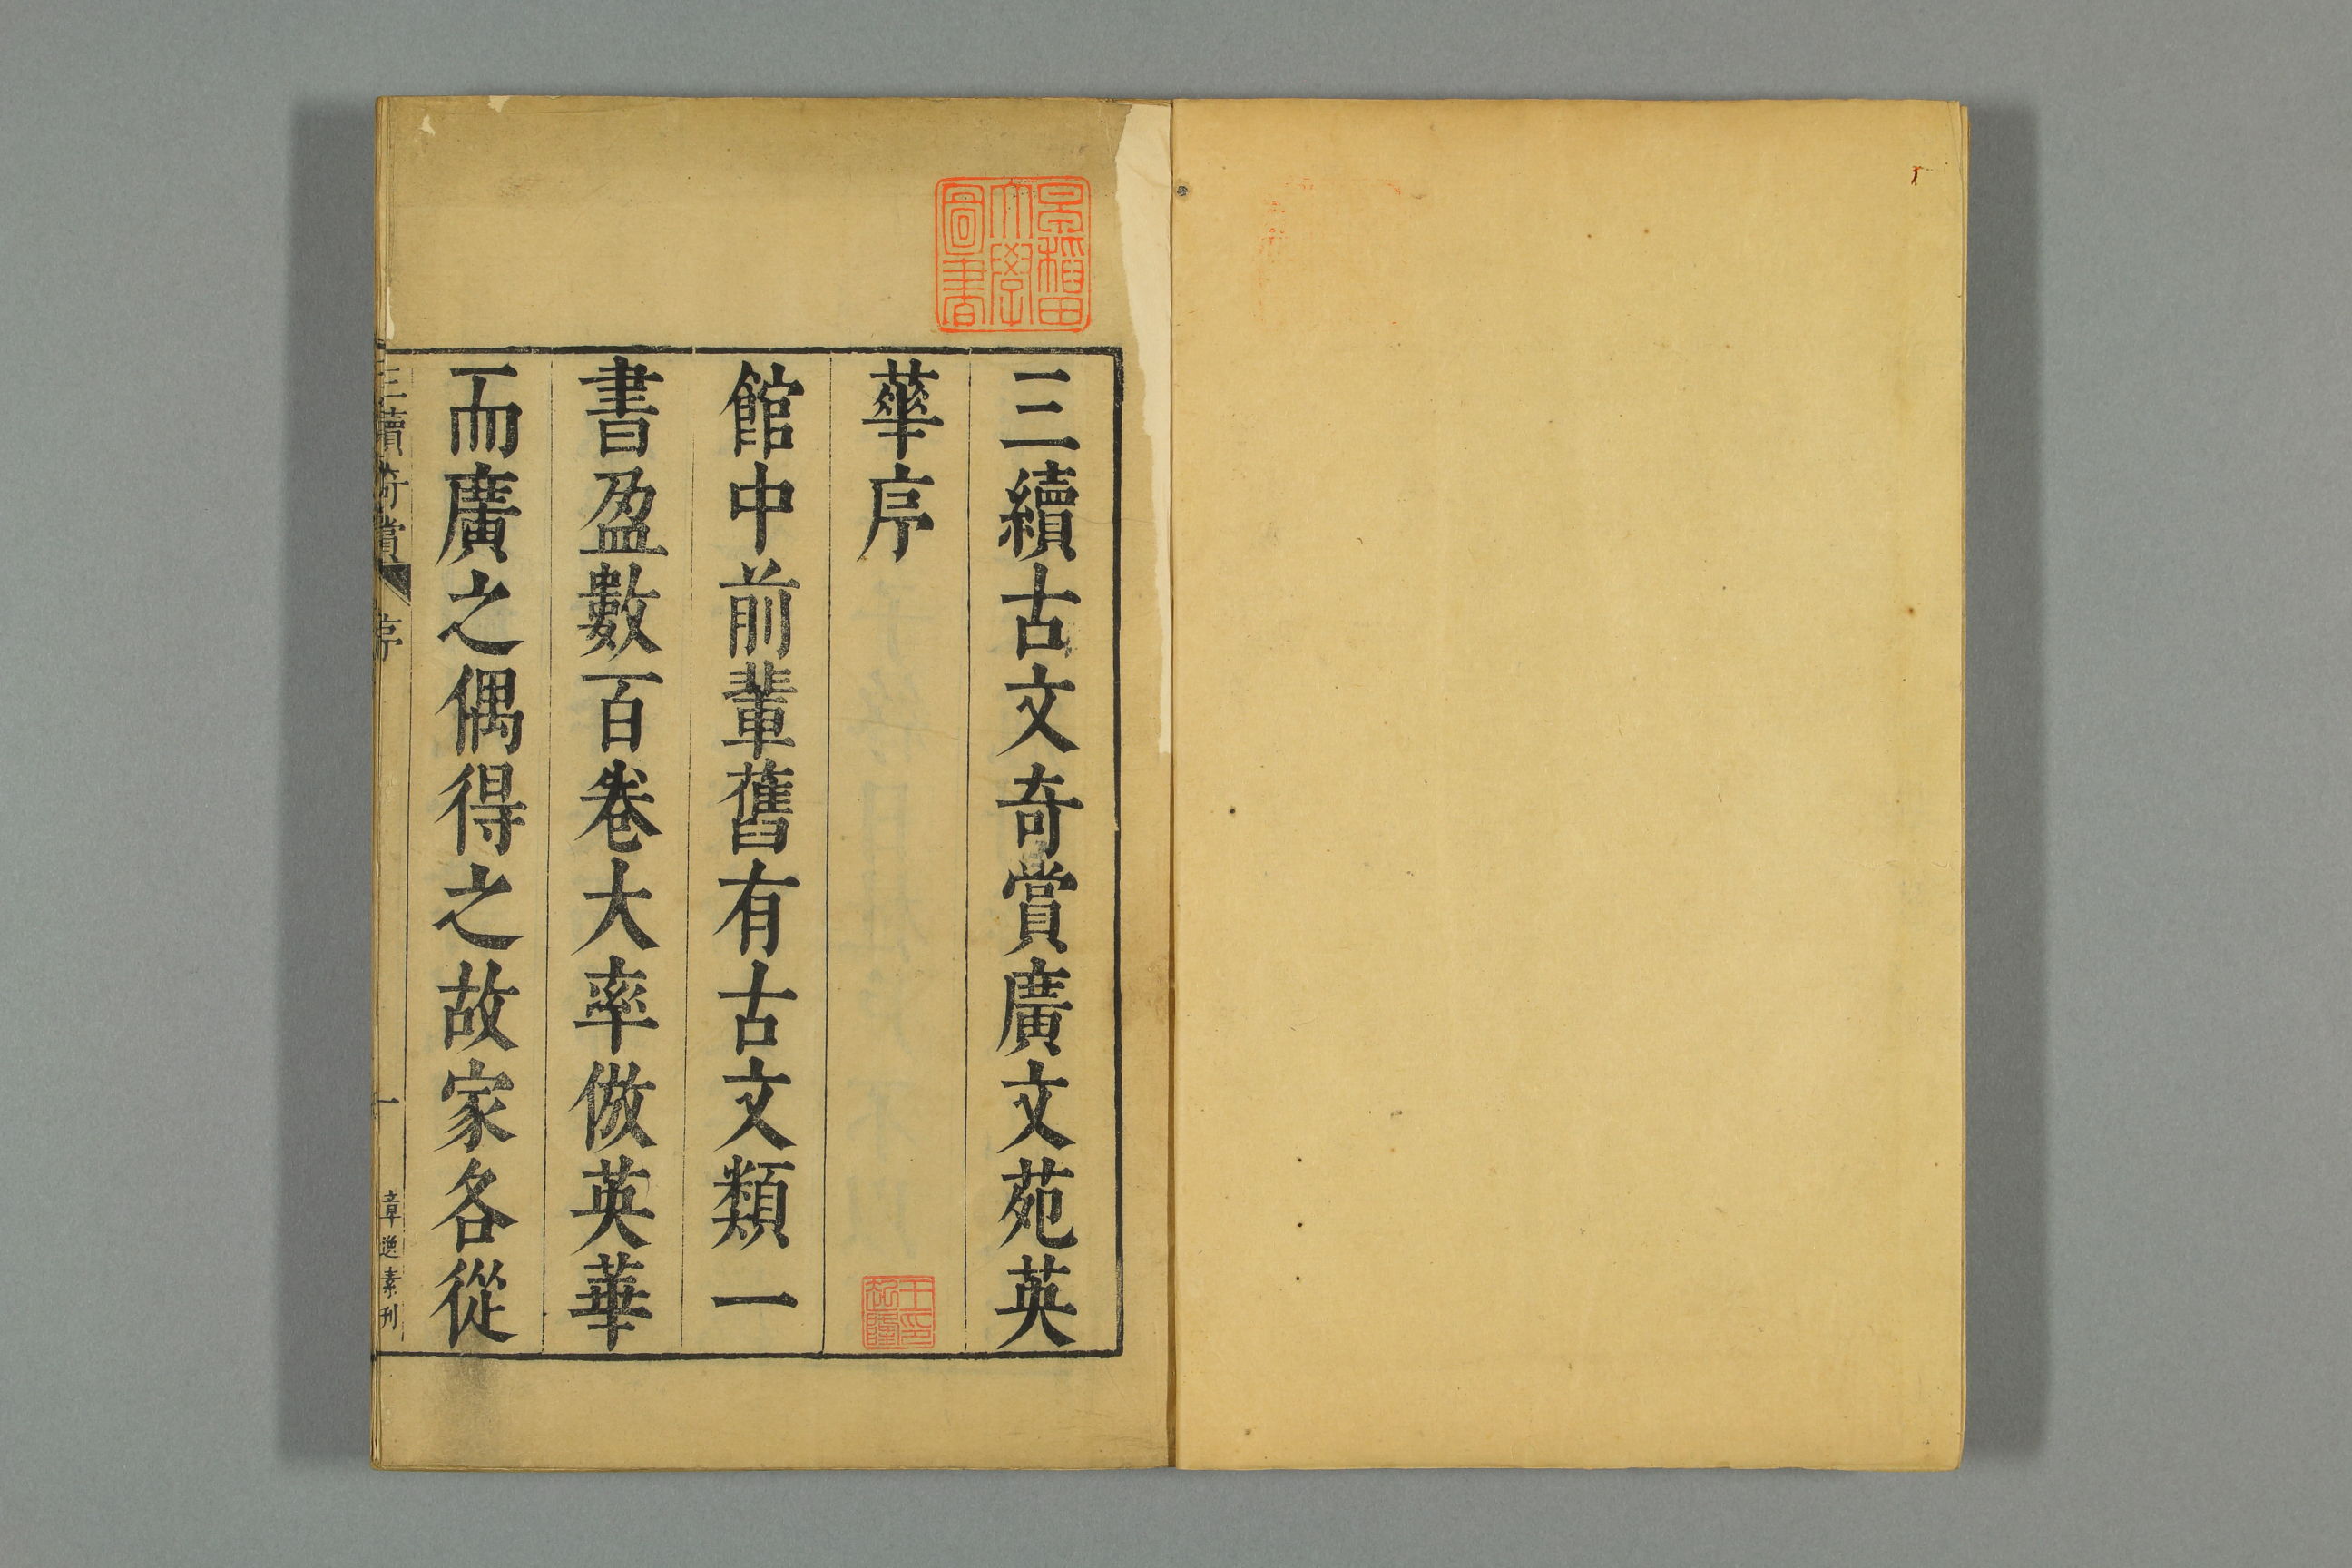 三續古文奇賞廣文苑英
華序
館中前輩舊有古文類一
書盈數百卷大率倣英華
而廣之偶得之故家各從
三續奇賞
序
一
章逸素刊
早稻田
大學
圖書